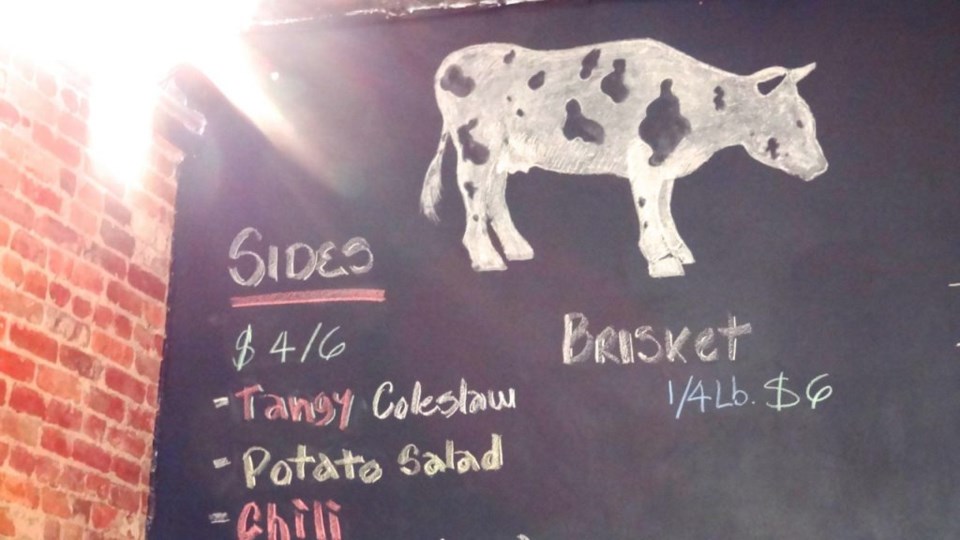 SIDES
$4/6
- Tangy Coleslaw
- Potato Salad
- Chili
BRISKet
1/4 Lb. $6